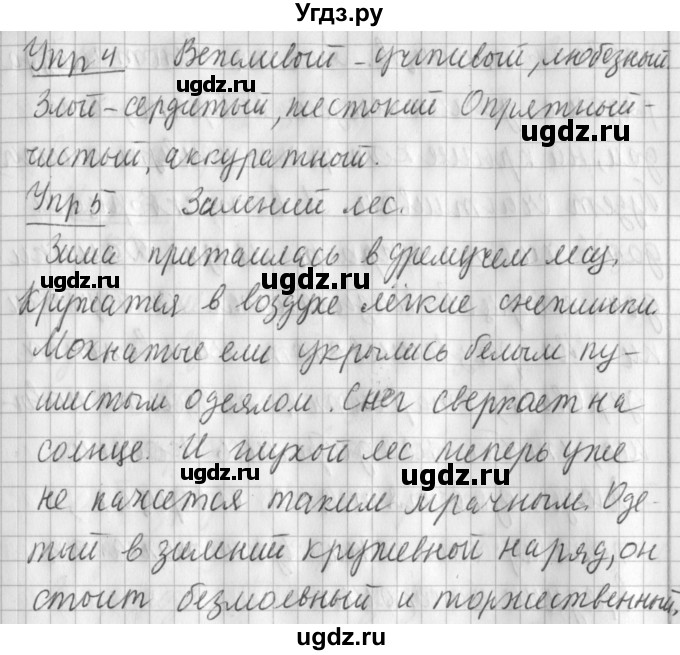 Угдз.ру
Упр 4 Вежливый - учтивый, любезный
Злой - сердитый, жестокий Опрятный -
чистый, аккуратный.
Упр 5 Зимний лес.
Зима притаилась в дремучем лесу.
Кружатся в воздухе лёгкие снежинки.
Мохнатые ели укрылись белым пу-
шистым одеялом. Снег сверкает на
солнце. И глухой лес теперь уже
не кажется таким мрачным. Оде-
тый в зимний кружевной наряд, он
стоит безмолвный и торжественный.
ugdz.ru
ugdz.ru
ugdz.ru
ugdz.ru
ugdz.ru
ugdz.ru
ugdz.ru
ugdz.ru
ugdz.ru